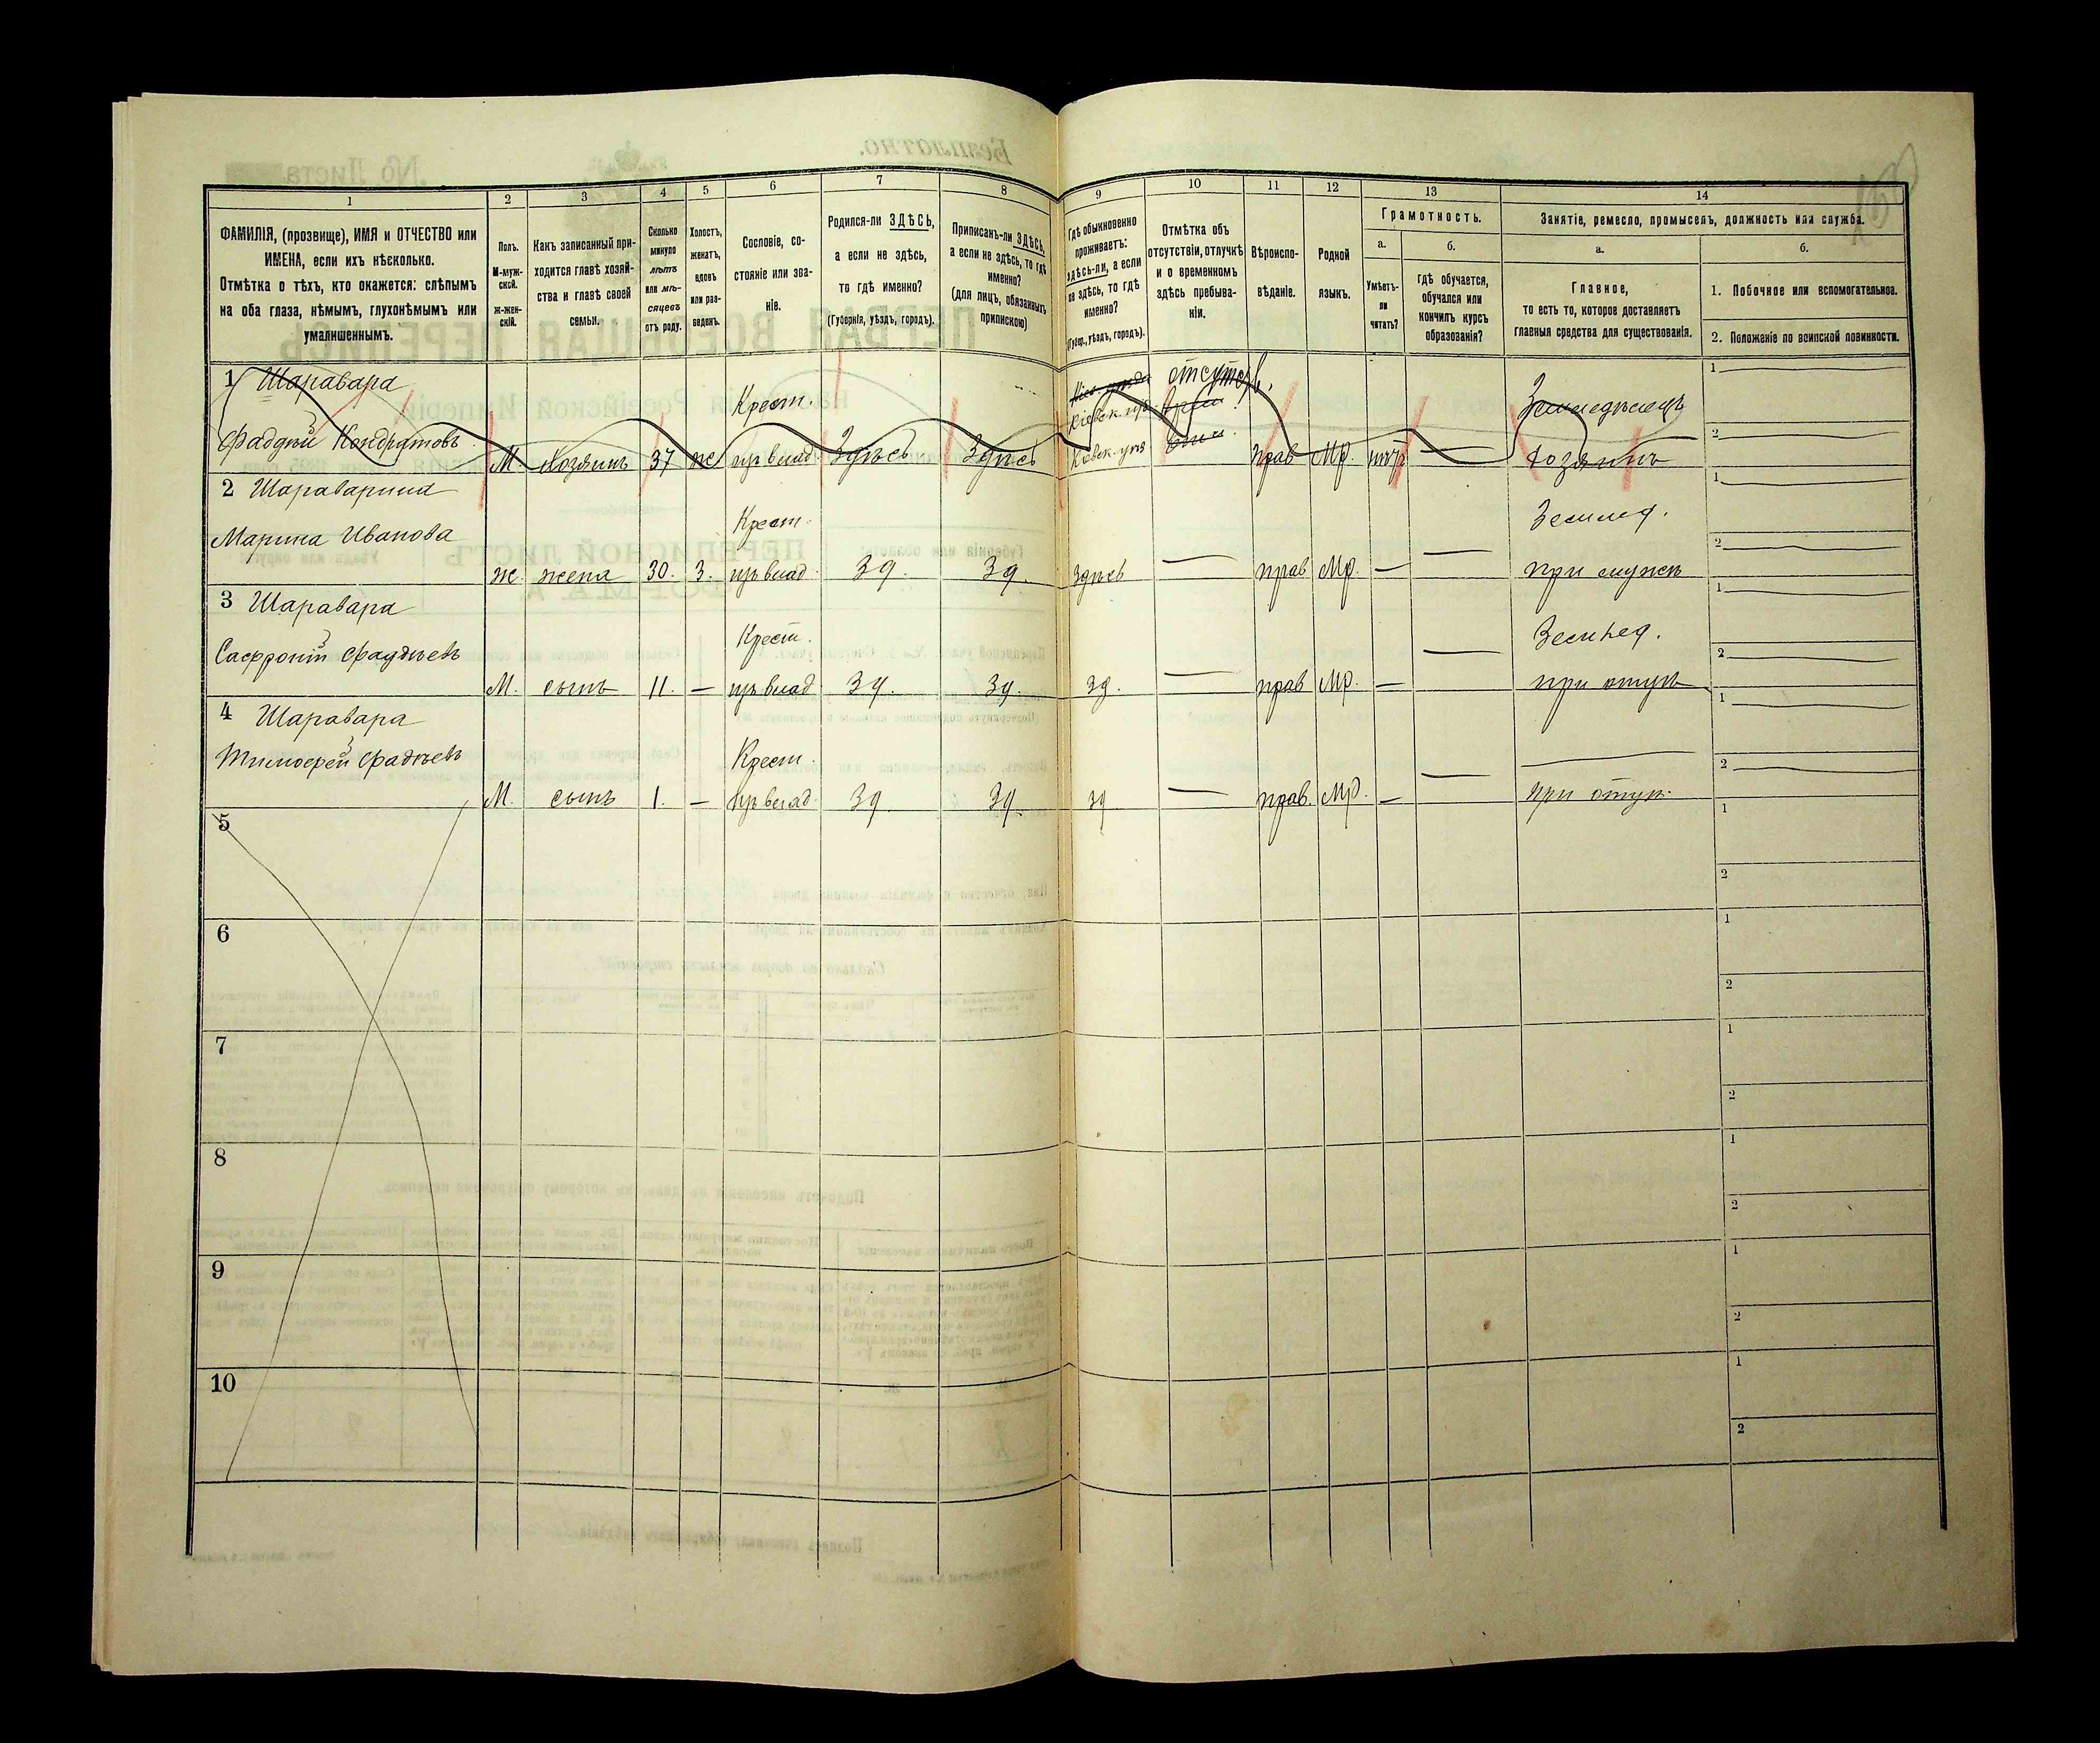 1
2
3
4
5
6
7
8
9
10
11
12
13
14
ФАМИЛІЯ, (прозвище), ИМЯ и ОТЧЕСТВО или
ИМЕНА, если ихъ нѣсколько.
Отмѣтка о тѣхъ, кто окажется: слѣпымъ
на оба глаза, нѣмымъ, глухонѣмымъ или
умалишеннымъ.
Полъ.
М-муж-
ской.
Ж-жен-
скій.
Какъ записанный при-
ходится главѣ хозяй-
ства и главѣ своей
семьи.
Сколько
минуло
лѣтъ
или мѣ-
сяцевъ
отъ роду.
Холостъ,
женатъ,
вдовъ
или раз-
веденъ.
Сословіе, со-
стояніе или зва-
ніе.
Родился-ли ЗДѢСЬ,
а если не здѣсь,
то гдѣ именно?
(Губернія, уѣздъ, городъ).
Приписанъ-ли ЗДѢСЬ,
а если не здѣсь, то гдѣ
именно?
(для лицъ, обязанныхъ
припискою)
Гдѣ обыкновенно
проживаетъ:
здѣсь-ли, а если
не здѣсь, то гдѣ
именно?
(Губер., уѣздъ, городъ).
Отмѣтка объ
отсутствіи, отлучкѣ
и о временномъ
здѣсь пребыва-
ніи.
Вѣроиспо-
вѣданіе.
Родной
языкъ.
Грамотность.
а.
Умѣетъ-
ли
читать?
б.
гдѣ обучается,
обучался или
кончилъ курсъ
образованія?
Занятіе, ремесло, промыселъ, должность или служба.
а.
Главное,
то есть то, которое доставляетъ
главныя средства для существованія.
б.
1. Побочное или вспомогательное.
2. Положеніе по воинской повинности.
1 Шаравара
Фаддѣй Кондратовъ
М. хозяинъ 37 ж
Крест.
изъ влад.
Здѣсь
Здѣсь
Кіевск. губ.
отсутств.
прав
Мр.
Земледѣлецъ
хозяинъ
1
2
2 Шараварина
Марина Иванова
ж. жена 30. З.
Крест.
изъ влад.
Зд.
Зд.
Здѣсь
—
прав
Мр.
—
—
Землед.
при мужѣ
1
2
3 Шаравара
Сафроній Фаддѣевъ
М. сынъ 11. —
Крест.
изъ влад
Зд.
Зд.
Зд.
—
прав
Мр.
—
—
Землед.
при отцѣ
1
2
4 Шаравара
Тимофей Фадѣевъ
М. сынъ 1. —
Крест.
изъ влад.
Зд
Зд
Зд
—
прав.
Мр.
—
—
при отцѣ.
1
2
5
1
2
6
1
2
7
1
2
8
1
2
9
1
2
10
1
2